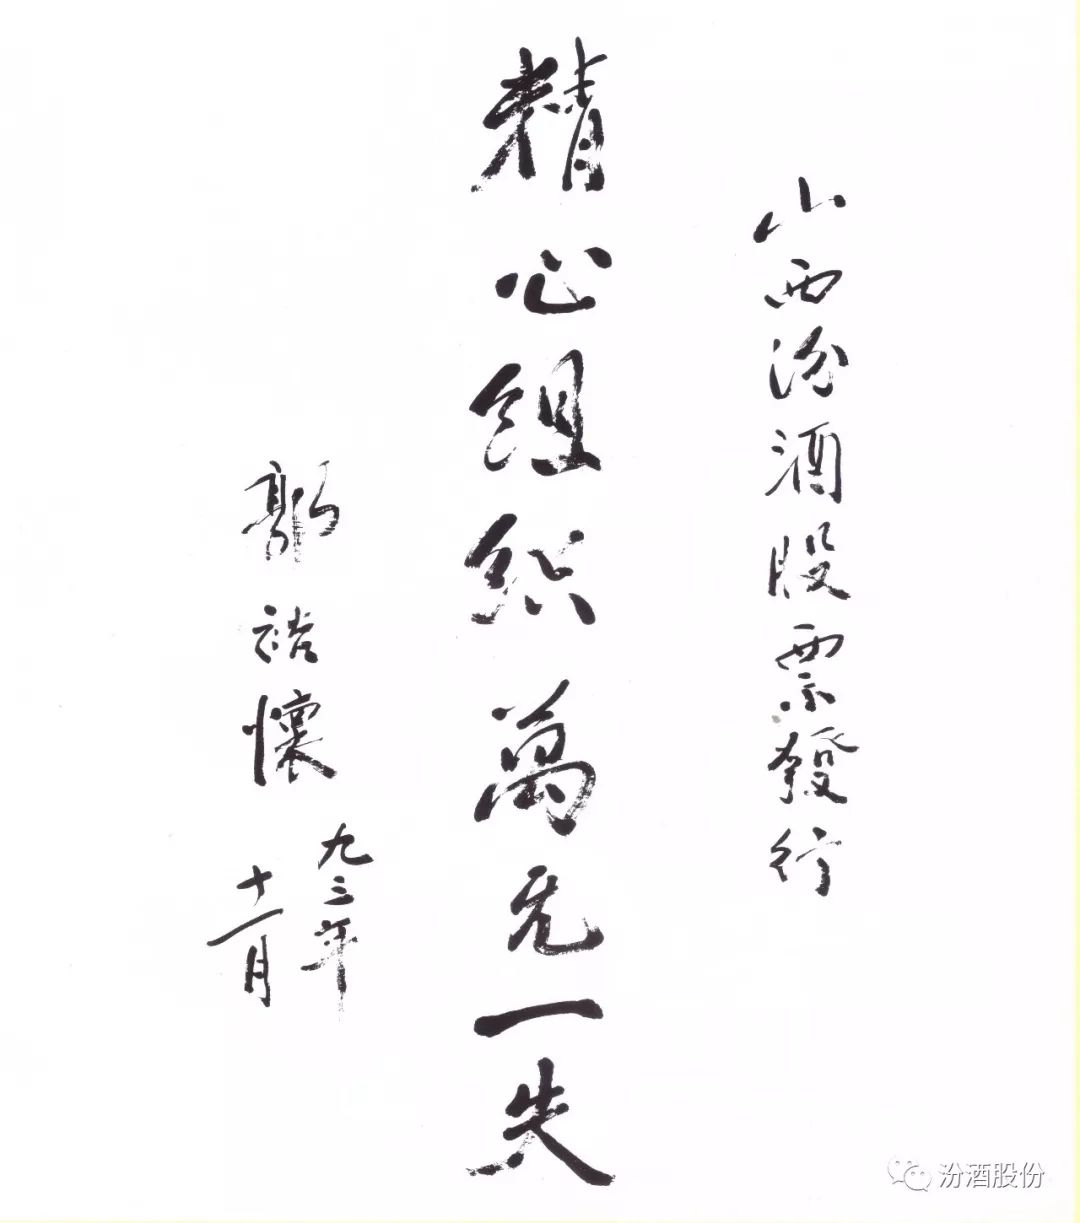 山西汾酒股票發行
精心组织萬无一失
郭裕懷
九三年
十一月
汾酒股份